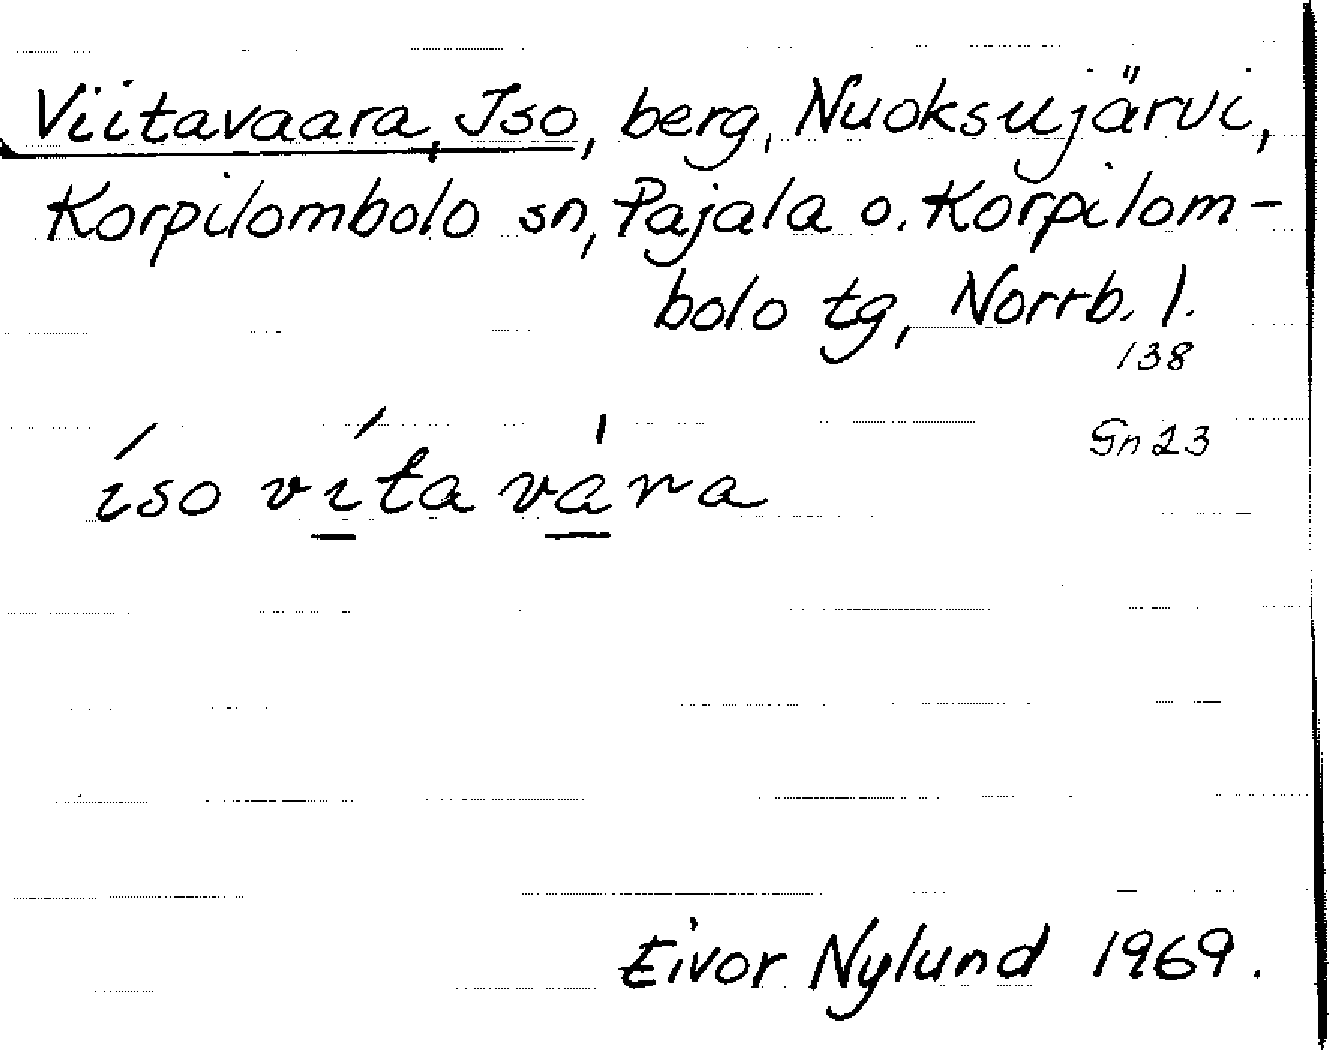 Viitavaara, Iso, berg, Nuoksujärvi,
Korpilombolo sn, Pajala o. Korpilom-
bolo tg, Norrb. l.
138
Gn 23
íso ví̱ta vá̱ra
Eivor Nylund 1969.